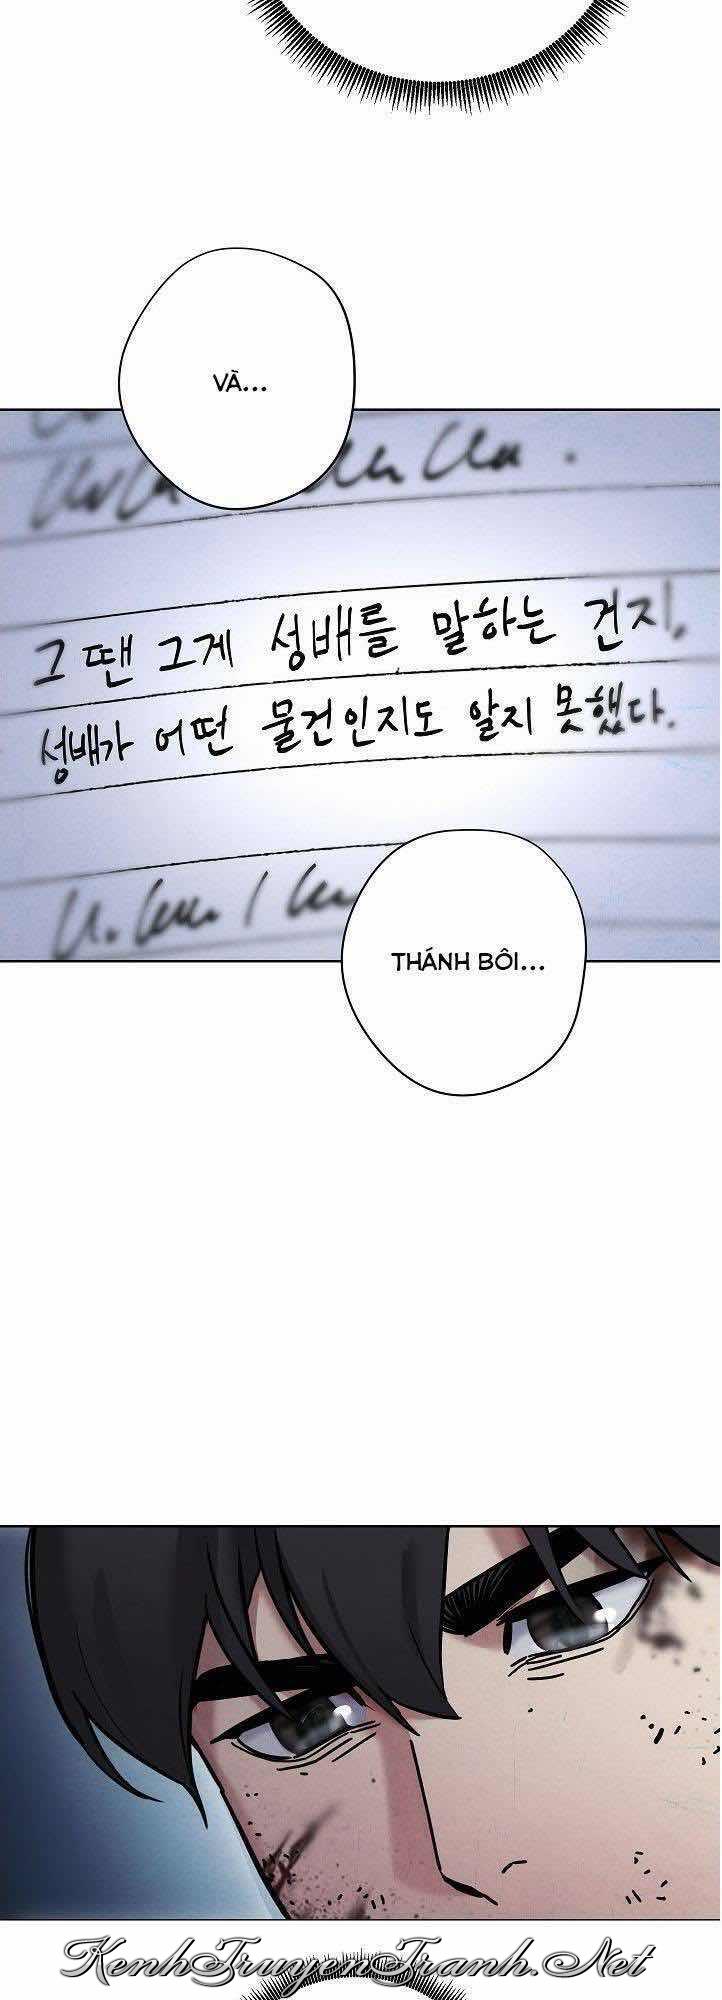 VÀ...
그 땐 그게 성배를 말하는 건지,
성배가 어떤 물건인지도 알지 못했다.
THÁNH BÔI...
KenhTruyenTranh.Net